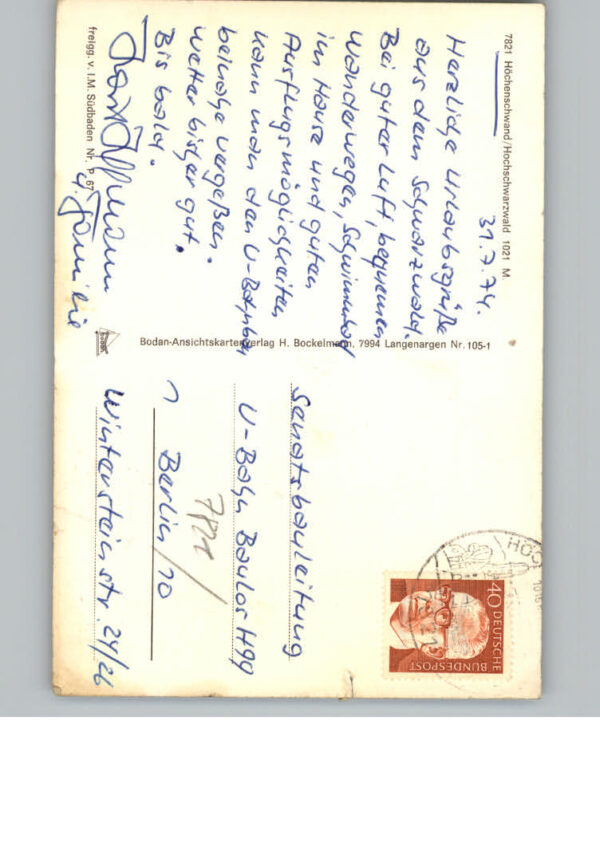 7821 Höchenschwand/Hochschwarzwald 1021 M
31.7.74.
Herzliche Urlaubsgrüße
aus dem Schwarzwald.
Bei guter Luft, bequemen
Wanderwegen, Schwimmbad
im Hause und guten
Ausflugsmöglichkeiten
kann man den U-Bahnbau
beinahe vergeßen.
Wetter bisher gut.
Bis bald.
u. Familie
freigg. v. I.M. Südbaden Nr. P 67
Bodan-Ansichtskartenverlag H. Bockelmann, 7994 Langenargen Nr. 105-1
Senatsbauleitung
U-Bahn Baulos H99
1 Berlin/10
Wintersteinstr. 24/26
40 DEUTSCHE
BUNDESPOST